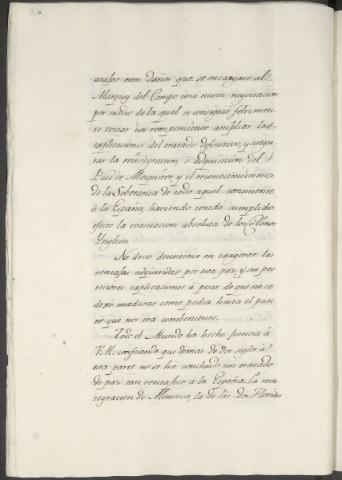 atajar este daño que se encargase al
Marques del Campo una nueva negociacion
por medio de la qual se consiguio felizmen
te evitar un rompimiento ampliar las
explicaciones del tratado definitivo, y asegu
rar la reintegracion, o adquisicion del
Pais de Mosquitos, y el reconocimiento
de la Soberania de todo aquel continente
à la España, haviendo tenido cumplido
efecto la evacuacion absoluta de los Colonos
Yngleses.
No devo detenerme en exagerar las
ventajas adquiridas por esta paz, y sus pos
teriores explicaciones à pesar de que no se
dexò madurar como pedia hasta el pun
to que nos era combeniente.
Todo el Mundo ha hecho justicia à
V.M. confesando que demas de dos siglos à
esta parte no se ha concluido un tratado
de paz tan ventajoso à la España. La rein
tegracion de Menorca, la de las dos Floridas